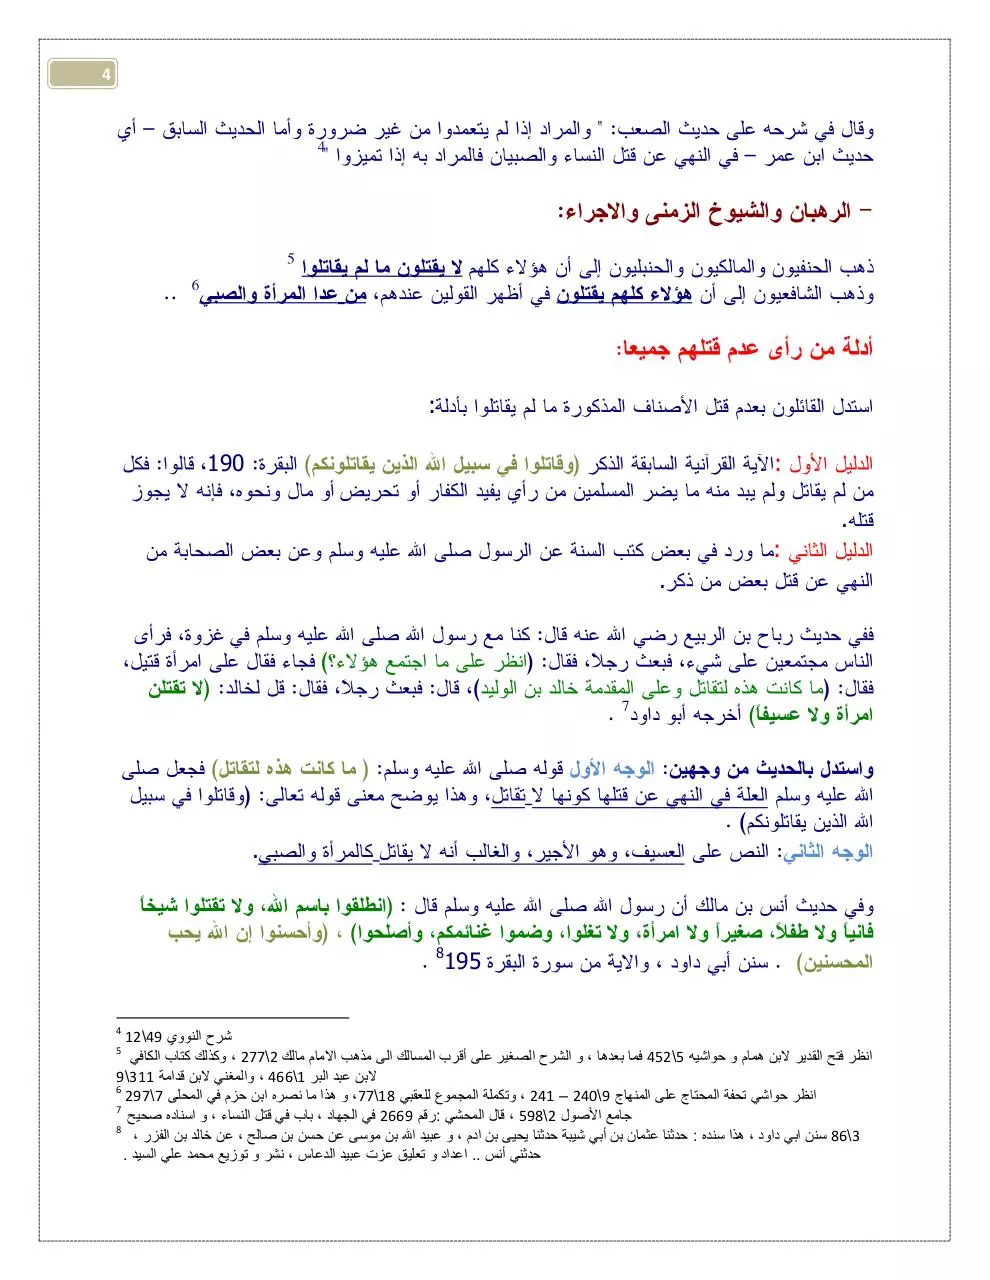 4
وقال في شرحه على حديث الصعب: " والمراد إذا لم يتعمدوا من غير ضرورة وأما الحديث السابق – أي
حديث ابن عمر – في النهي عن قتل النساء والصبيان فالمراد به إذا تميزوا "4
- الرهبان والشيوخ الزمنى والاجراء:
ذهب الحنفيون والمالكيون والحنبليون إلى أن هؤلاء كلهم لا يقتلون ما لم يقاتلوا 5
وذهب الشافعيون إلى أن هؤلاء كلهم يقتلون في أظهر القولين عندهم، من عدا المرأة والصبي6 ..
أدلة من رأى عدم قتلهم جميعا:
استدل القائلون بعدم قتل الأصناف المذكورة ما لم يقاتلوا بأدلة:
الدليل الأول :الآية القرآنية السابقة الذكر (وقاتلوا في سبيل الله الذين يقاتلونكم) البقرة: 190، قالوا: فكل
من لم يقاتل ولم يبد منه ما يضر المسلمين من رأي يفيد الكفار أو تحريض أو مال ونحوه، فإنه لا يجوز
قتله.
الدليل الثاني :ما ورد في بعض كتب السنة عن الرسول صلى الله عليه وسلم وعن بعض الصحابة من
النهي عن قتل بعض من ذكر.
ففي حديث رباح بن الربيع رضي الله عنه قال: كنا مع رسول الله صلى الله عليه وسلم في غزوة، فرأى
الناس مجتمعين على شيء، فبعث رجلاً، فقال: (انظر على ما اجتمع هؤلاء؟) فجاء فقال على امرأة قتيل،
فقال: (ما كانت هذه لتقاتل وعلى المقدمة خالد بن الوليد)، قال: فبعث رجلاً، فقال: قل لخالد: (لا تقتلن
امرأة ولا عسيفاً) أخرجه أبو داود7 .
واستدل بالحديث من وجهين: الوجه الأول قوله صلى الله عليه وسلم: ( ما كانت هذه لتقاتل) فجعل صلى
الله عليه وسلم العلة في النهي عن قتلها كونها لا تقاتل، وهذا يوضح معنى قوله تعالى: (وقاتلوا في سبيل
الله الذين يقاتلونكم) .
الوجه الثاني: النص على العسيف، وهو الأجير، والغالب أنه لا يقاتل كالمرأة والصبي.
وفي حديث أنس بن مالك أن رسول الله صلى الله عليه وسلم قال : (انطلقوا باسم الله، ولا تقتلوا شيخاً
فانياً ولا طفلاً، صغيراً ولا امرأة، ولا تغلوا، وضموا غنائمكم، وأصلحوا) ، (وأحسنوا إن الله يحب
المحسنين) . سنن أبي داود ، والاية من سورة البقرة 195 8 .
4 شرح النووي 49\12
5 انظر فتح القدير لابن همام و حواشيه 5\452 فما بعدها ، و الشرح الصغير على أقرب المسالك الى مذهب الامام مالك 2\277 ، وكذلك كتاب الكافي
لابن عبد البر 1\466 ، والمغني لابن قدامة 311\9
6 انظر حواشي تحفة المحتاج على المنهاج 9\240 – 241 ، وتكملة المجموع للعقبي 18\77، و هذا ما نصره ابن حزم في المحلى 7\297
7 جامع الأصول 2\598 ، قال المحشي :رقم 2669 في الجهاد ، باب في قتل النساء ، و اسناده صحيح
8 3\86 سنن ابي داود ، هذا سنده : حدثنا عثمان بن أبي شيبة حدثنا يحيى بن ادم ، و عبيد الله بن موسى عن حسن بن صالح ، عن خالد بن الفزر ،
حدثني أنس .. اعداد و تعليق عزت عبيد الدعاس ، نشر و توزيع محمد علي السيد .